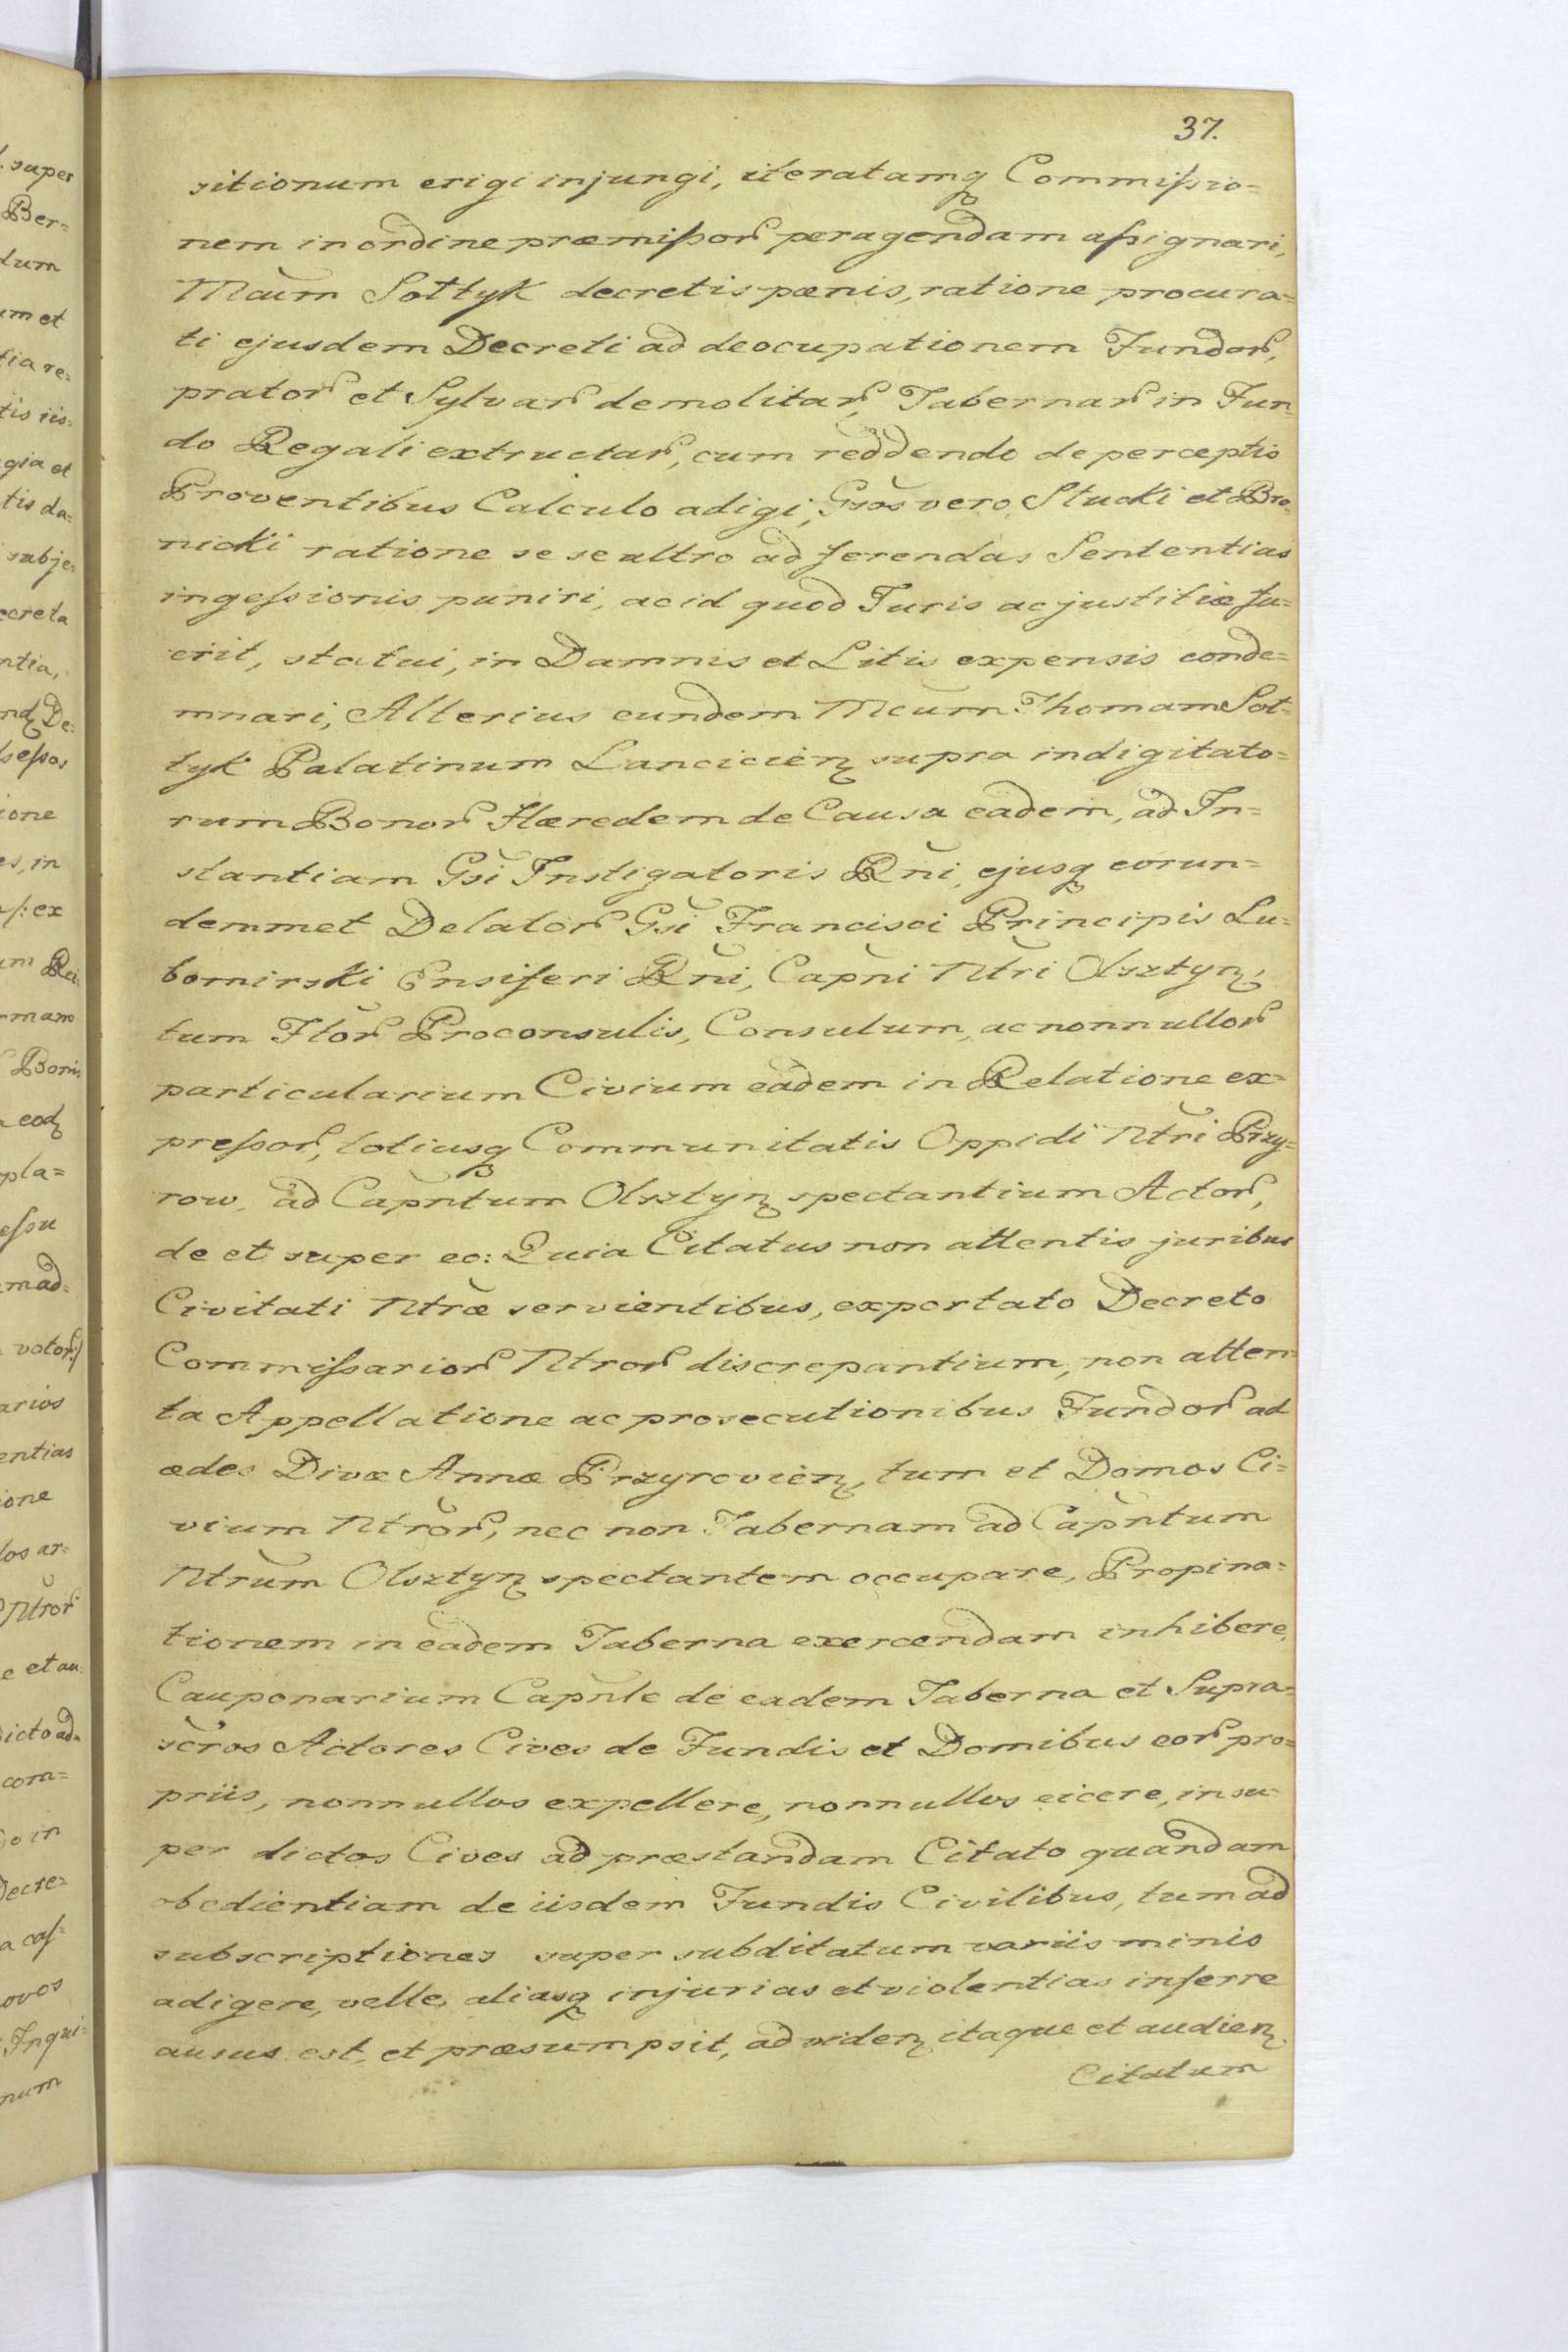 37.
sitionum erigi injungi, iteratamq Commissio=
nem in ordine præmissor peragendam assignari,
Mcum Sołtyk decretis pænis, ratione procura=
ti ejusdem Decreti ad deocupationem Fundor,
prator et Sylvar demolitar, Tabernar in Fun=
do Regali extructar, cum reddendo de perceptis
Proventibus Calculo adigi, Gsos vero Słucki et Bro=
nicki ratione se se ultro ad ferendas Sententias
ingessionis puniri, ac id quod Juris ac justitiæ fu=
erit, statui, in Damnis et Litis expensis conde=
mnari, Alterius eundem Mcum Thomam Soł=
tyk Palatinum Lancicien supra indigitato=
rum Bonor Hæredem de Causa eadem, ad In=
stantiam Gsi Instigatoris Rni, ejusq eorun=
demmet Delator Gsi Francisci Principis Lu=
bomirski Ensiferi Rni, Capni Ntri Olsztyn,
tum Flor Proconsulis, Consulum, ac nonnullor
particularium Civium eadem in Relatione ex=
pressor, totiusq Communitatis Oppidi Ntri Przy=
row, ad Capntum Olsztyn spectantium Actor,
de et super eo: Quia Citatus non attentis juribus
Civitati Ntræ servientibus, exportato Decreto
Commissarior Ntror discrepantium, non atten=
ta Appellatione ac prosecutionibus Fundor ad
ædes Divæ Annæ Przyrovien, tum et Domos Ci=
vium Ntror, nec non Tabernam ad Capntum
Ntrum Olsztyn spectantem occupare, Propina=
tionem in eadem Taberna exercendam inhibere,
Cauponarium Capnle de eadem Taberna et Supra=
scros Actores Cives de Fundis et Domibus eor pro=
priis, nonnullos expellere, nonnullos eicere, insu=
per dictos Cives ad præstandam Citato quandam
obedientiam de iisdem Fundis Civilibus, tum ad
subscriptiones super subditatum variis minis
adigere, velle, aliasq injurias et violentias inferre
ausus est, et præsumpsit, ad viden itaque et audien
Citatum